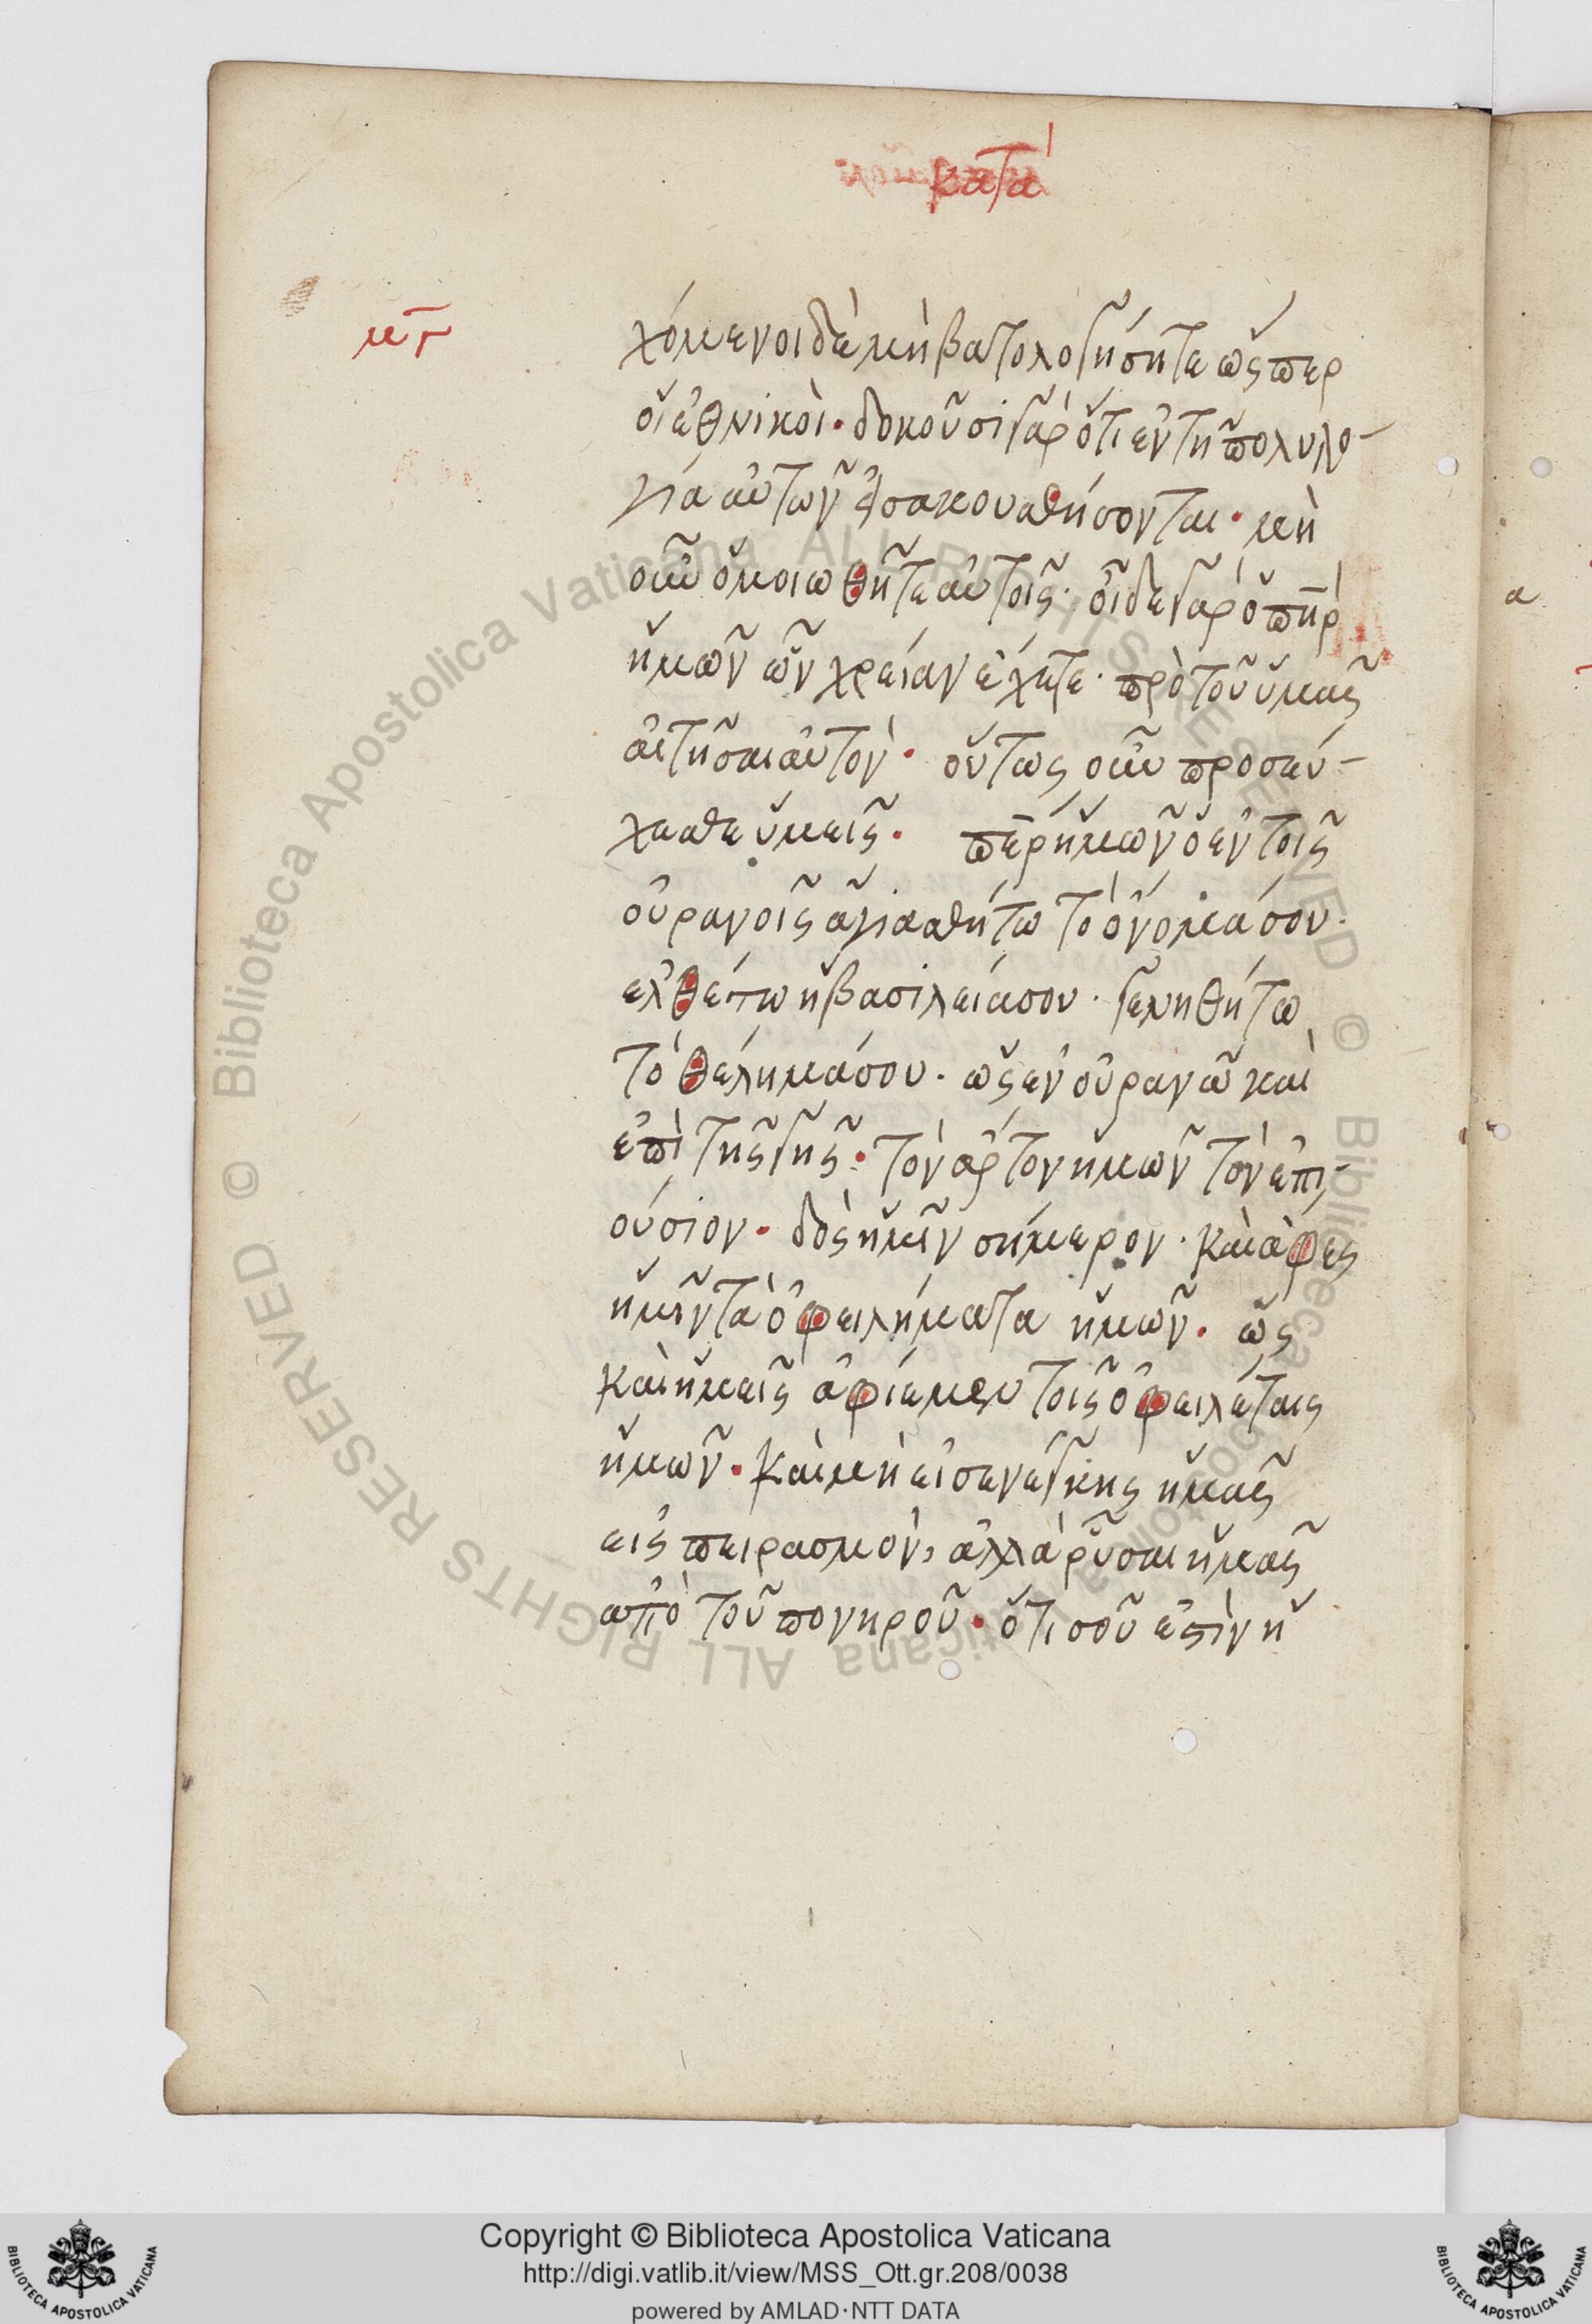 κατὰ
μγ
χόμενοι δὲ μὴ βατολογήσητε ὥσπερ
οἱ ἐθνικοὶ· δοκοῦσι γὰρ ὅτι ἐν τῇ πολυλο-
γία αὐτῶν εἰσακουσθήσονται· μὴ
οὖν ὁμοιωθῆτε αὐτοῖς· οἶδε γὰρ ὁ πηρ
ἡμῶν ὧν χρείαν ἔχετε· πρὸ τοῦ ὑμᾶς
αἰτῆσαι αὐτὸν· οὕτως οὖν προσεύ-
χεσθε ὑμεῖς· περ ἡμῶν ὁ ἐν τοῖς
οὐρανοῖς ἁγιασθήτω τὸ ὄνομά σου·
ἐλθέτω ἡ βασιλεία σου· γενηθήτω
τὸ θέλημά σου· ὡς ἐν οὐρανῶ καὶ
ἐπὶ τῆς γῆς· τὸν ἄρτον ἡμῶν τὸν ἐπι-
ούσιον· δὸς ἡμῖν σήμερον· καὶ ἄφες
ἡμῖν τὰ ὀφειλήματα ἡμῶν· ὡς
καὶ ἡμεῖς ἀφίεμεν τοῖς ὀφειλέταις
ἡμῶν· καὶ μὴ εἰσενέγκης ἡμᾶς
εἰς πειρασμὸν, ἀλλὰ ῥῦσαι ἡμᾶς
ἀπὸ τοῦ πονηροῦ· ὅτι σοῦ ἐστὶν ἡ
a
Copyright © Biblioteca Apostolica Vaticana
http://digi.vatlib.it/view/MSS_Ott.gr.208/0038
powered by AMLAD·NTT DATA
BIBLIOTECA APOSTOLICA VATICANA
BIBLIOTECA APOSTOLICA VATICANA
© Biblioteca Apostolica Vaticana ALL RIGHTS RESERVED © Biblioteca Apostolica Vaticana ALL RIGHTS RESERVED